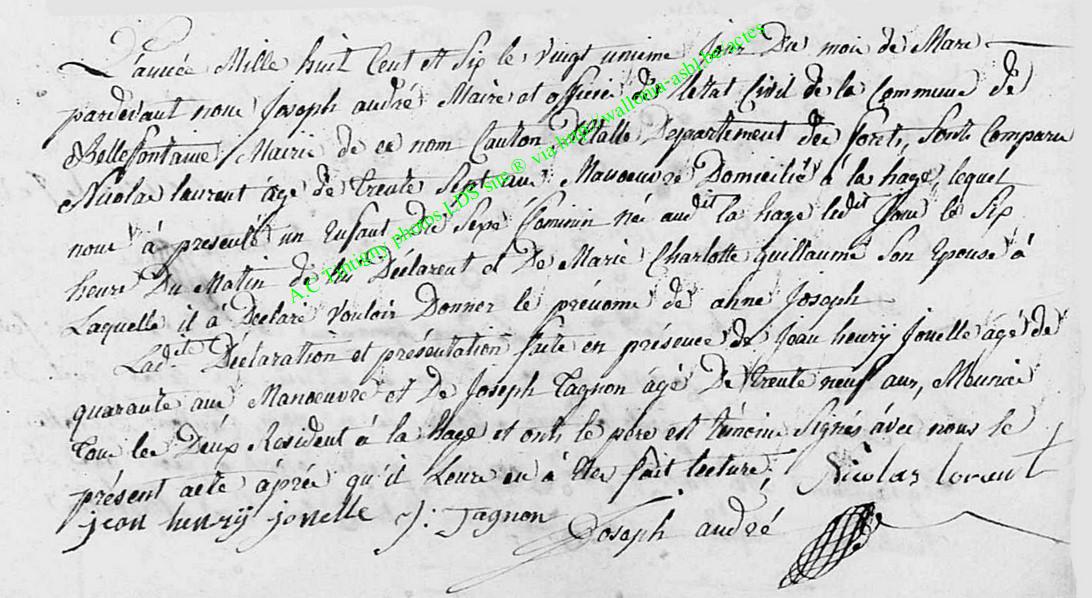 L'année Mille huit Cent et Six le vingt unieme Jour Du mois de Mars
pardevant nous Joseph andré Maire et officié de L'etat Civil de la Commune de
Bellefontaine Mairie de ce nom Canton d'Etalle Departement des forets, Sont Comparu
Nicolas laurent âgé de trente Sept ans Manoeuvre Domicilié à la hage, lequel
nous à presenté un Enfant de Sexe Feminin né audit la hage ledit Jour le Six
heure Du Matin de lui Déclarent et De Marie Charlotte guillaume Son Epouse à
Laquelle il à Déclaré Vouloir Donner le prénoms de anne Joseph
Ladite Déclaration et présentation faite en présence de Jean henry Jonelle âgé de
quarante ans Manoeuvre et de Joseph Tagnon âgé De trente neuf ans, Meunier
Tous les Deux Resident à la hage et onts le père est témoins Signés avec nous le
présent acte âprés qu'il Leurs en à Eter fait lecture;
Nicolas lorent
jean henry jonelle J: Tagnon Joseph andré
A.C Tintigny photos LDS site® via http://wallonia-asbl.be/actes